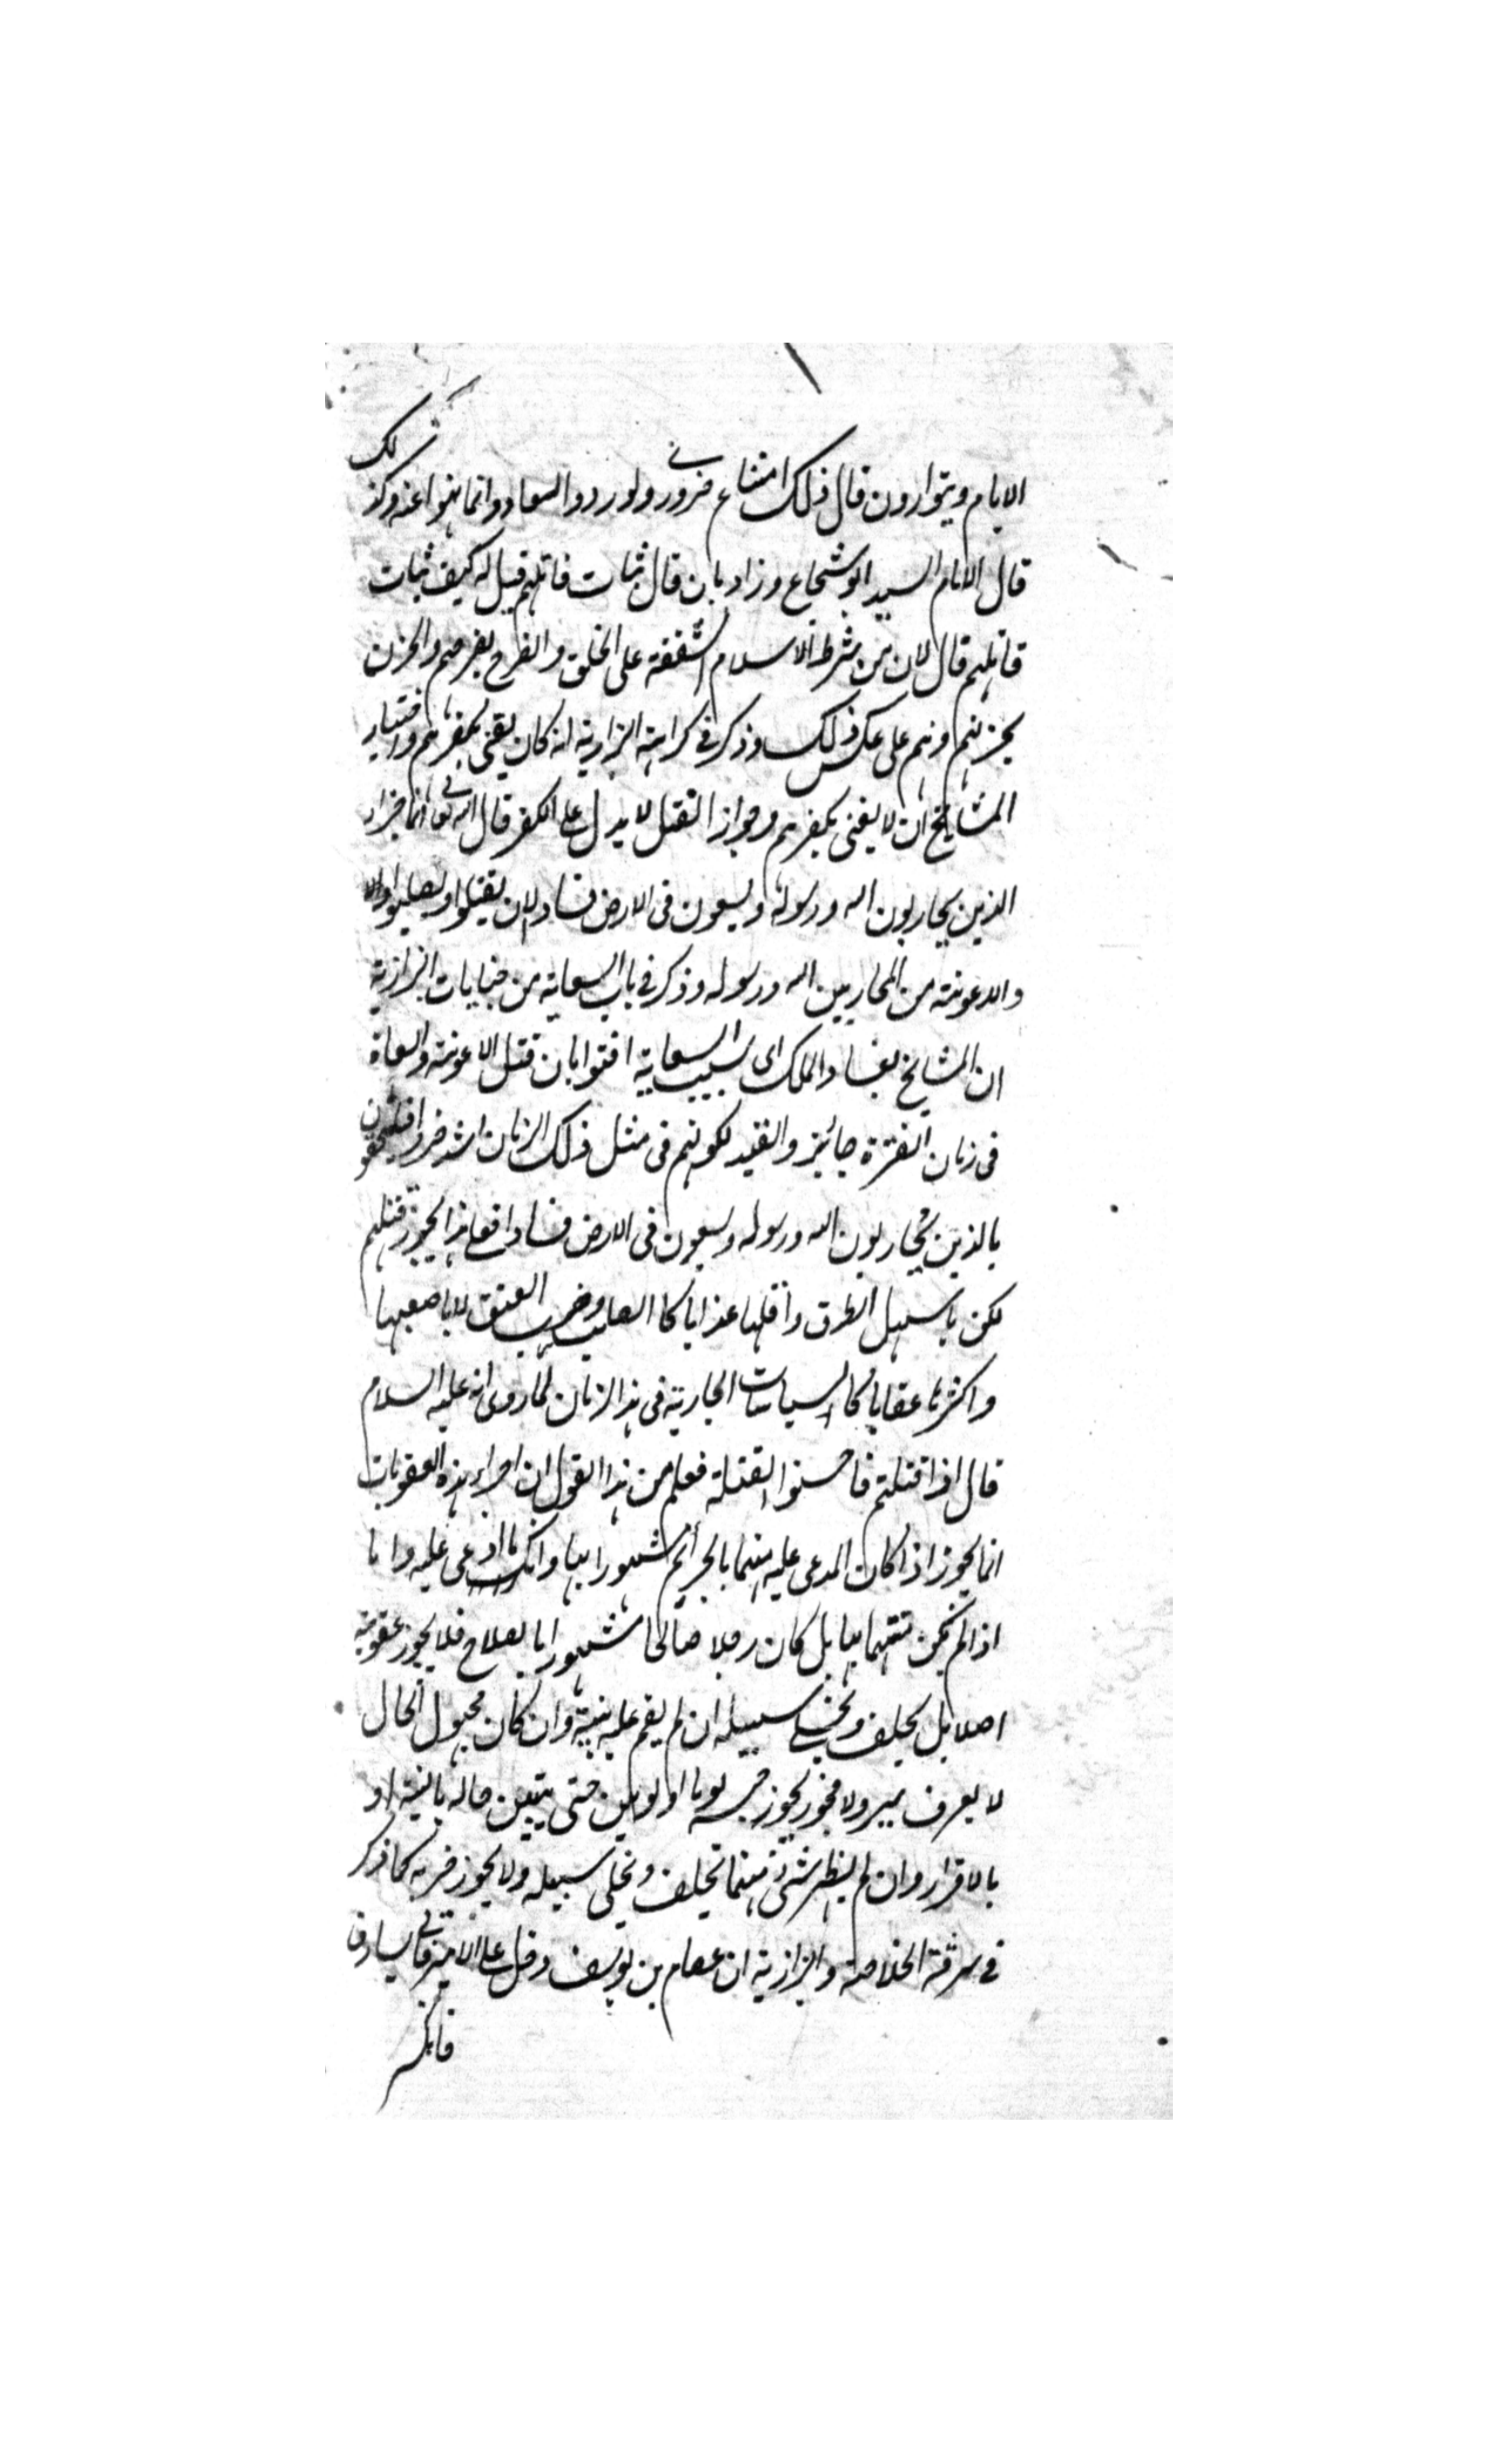 الايام ويتوارون قال ذلك امتناع ضروري ولو ردوا لعادوا لما نهوا عنه وكذلك
قال الامام السيد ابو شجاع وزاد بان قال يثاب قاتلهم قيل له كيف يثاب
قاتلهم قال لان من شرط الاسلام الشفقة على الخلق والفرح بفرحهم والحزن
بحزنهم وهم على عكس ذلك وذكر في كراهية البزازية انه كان يفتى بكفرهم واختيار
المشايخ ان لا يفتى بكفرهم وجواز القتل لا يدل على الكفر قال الله تعالى انما جزاء
الذين يحاربون الله ورسوله ويسعون في الارض فسادا ان يقتلوا او يصلبوا الآية
والاعونة من المحاربين الله ورسوله وذكر في باب السعاية من جنايات البزازية
ان المشايخ بفساد الملك اى بسبب السعاية افتوا بان قتل الاعونة والسعاة
في زمان الفترة جائز والقيد لكونهم في مثل ذلك الزمان اشد ضررا فيلحقون
بالذين يحاربون الله ورسوله ويسعون في الارض فسادا فعلى هذا يجوز قتلهم
لكن باسهل الطرق واقلها عذابا كالصلب وضرب العنق لا باصعبها
واكثرها عقابا كالسياسات الجارية في هذا الزمان لما روى انه عليه السلام
قال اذا قتلتم فاحسنوا القتلة فعلم من هذا القول ان اجراء هذه العقوبات
انما يجوز اذا كان المدعى عليه متهما بالجرائم مشهورا بها وانكر ما ادعى عليه واما
اذا لم يكن متهما بها بل كان رجلا صالحا مشهورا بالصلاح فلا يجوز عقوبته
اصلا بل يحلف ويخلى سبيله ان لم يقم عليه بينة وان كان مجهول الحال
لا يعرف ببر ولا فجور يجوز حبسه يوما او يومين حتى يتبين حاله بالبينة او
بالاقرار وان لم يظهر شئ منهما يحلف ويخلى سبيله ولا يجوز ضربه كما ذكر
في سرقة الخلاصة والبزازية ان عصام بن يوسف دخل على الامير فاتى بسارق
فانكر